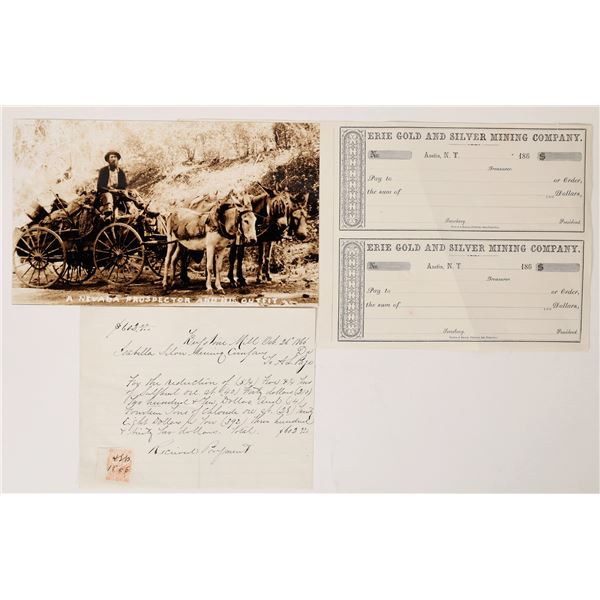 A NEVADA PROSPECTOR AND HIS OUTFIT
ERIE GOLD AND SILVER MINING COMPANY.
No. Austin, N. T. 186 $
Treasurer
Pay to or Order,
the sum of Dollars,
Secretary. President.
ERIE GOLD AND SILVER MINING COMPANY.
No. Austin, N. T. 186 $
Treasurer
Pay to or Order,
the sum of Dollars,
Secretary. President.
Mill Oct 26 1866
Mining Company Dr
To
For the reduction of (5¼) Five &¼ Tons
of Sulphuret ore at (40) Forty dollars (210)
Two hundred & Ten Dollars and (14)
Fourteen Tons of Chloride ore at (28) Twenty
Eight Dollars p Ton (392) Three hundred
& ninety two dollars. Total
Received Payment
1866